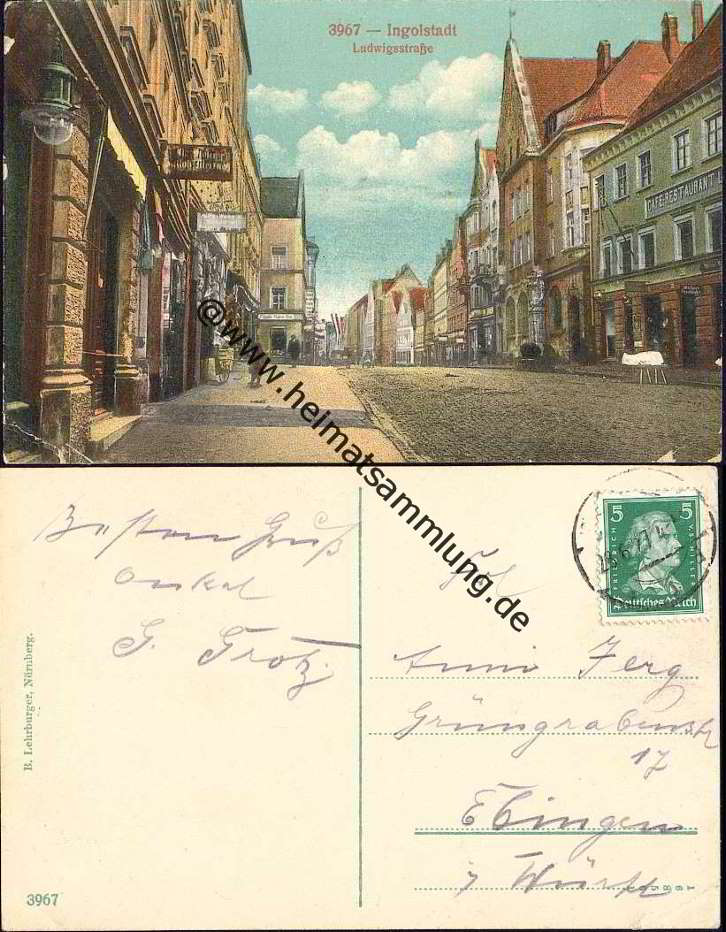 3967 — Ingolstadt
Ludwigsstraße
CAFE-RESTAURANT
@www.heimatsammlung.de
Besten Gruß
Onkel
G. Grotz
B. Lehrburger, Nürnberg.
3967
5 5
FRIEDRICH V. SCHILLER
Deutsches Reich
Anni Jerg
Grüngrabenstr
17
Ebingen
Württ